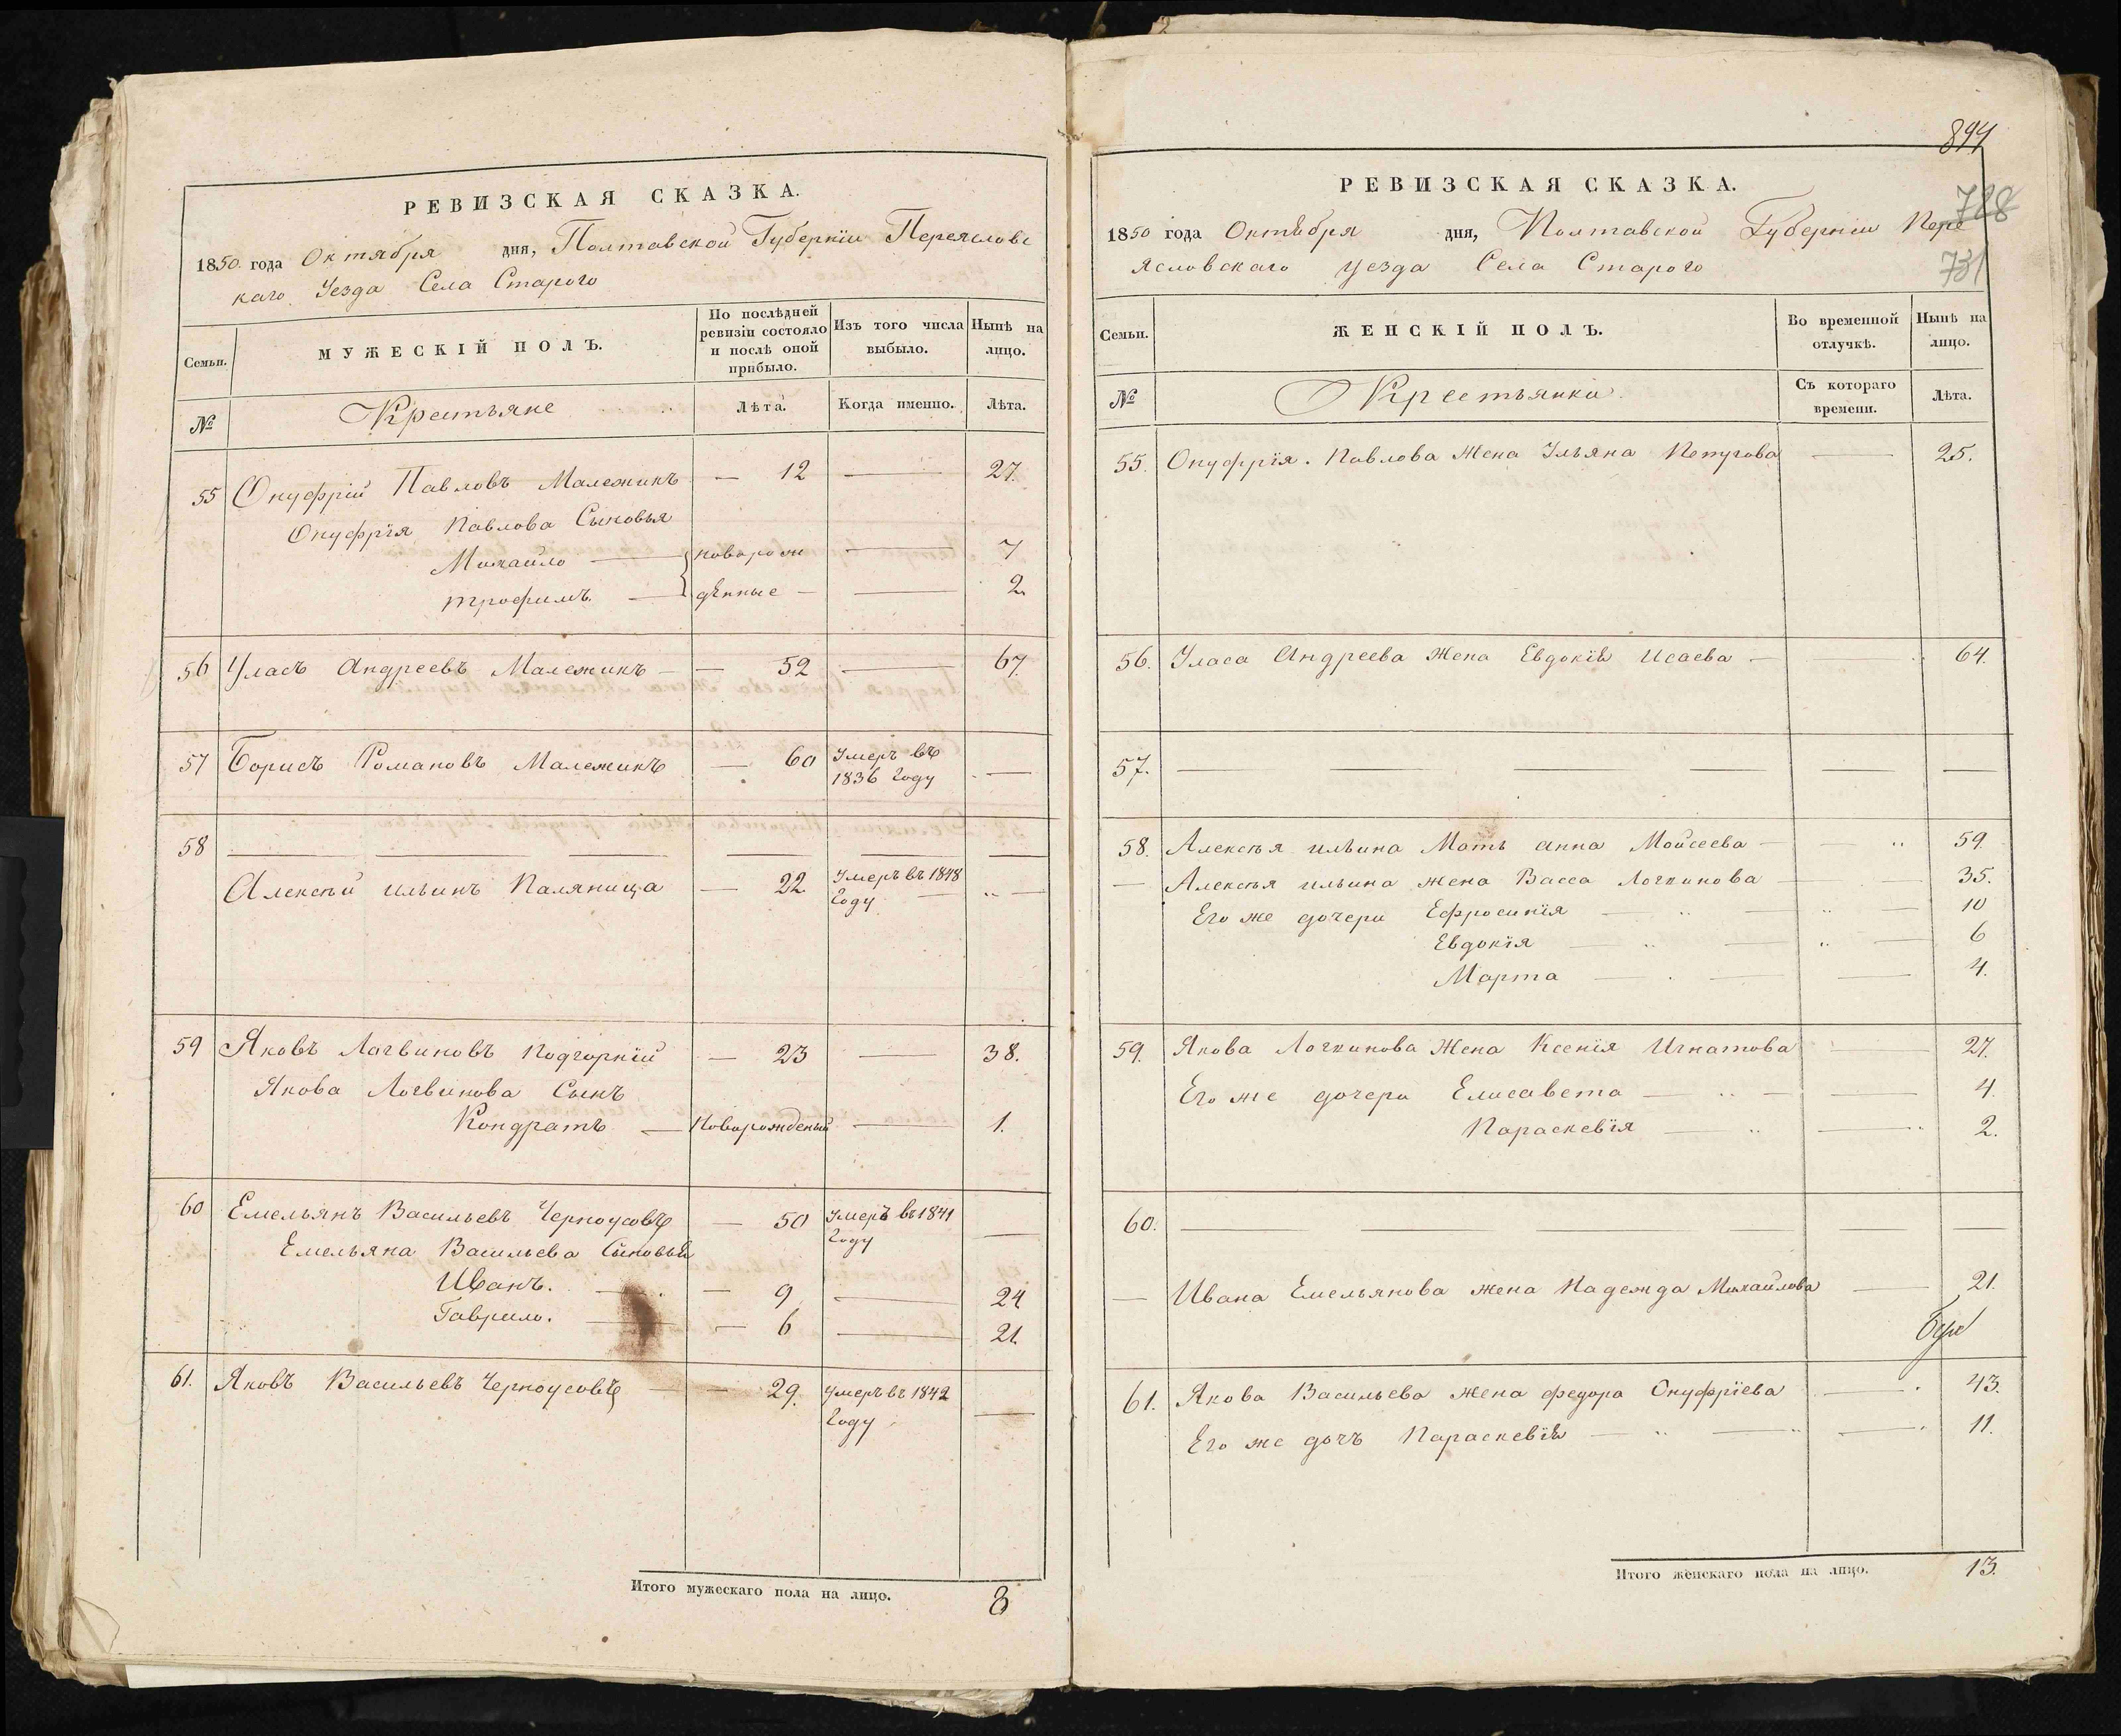 РЕВИЗСКАЯ СКАЗКА.
1850 года Октября дня, Полтавской Губернїи Переясловс
каго Уезда Села Старого
Семьи.
МУЖЕСКІЙ ПОЛЪ.
По послѣдней ревизіи состояло и послѣ оной прибыло.
Изъ того числа выбыло.
Нынѣ на лицо.
№
Крестьяне
Лѣта.
Когда именно.
Лѣта.
55 Онуфрій Павловъ Малежикъ — 12 — 27.
Онуфрія Павлова Сыновья
Михайло — новорож — 7
трофимъ. — дѣнные — — 2
56 Уласъ Андреевъ Малежикъ — — 52 — 67.
57 Борисъ Романовъ Малежикъ — 60 Умеръ въ —
1836 Году
58 — — — — — —
Алексѣй ильинъ Паляница — 22 Умеръ въ 1848 —
Году —
59 Яковъ Логвиновъ Подгорнїй — 23 — 38.
Якова Логвинова Сынъ
Кондратъ — Новорожденый — 1.
60 Емельянъ Васильевъ Черноусовъ — 50 Умеръ въ 1841 —
Году
Емельяна Васильева Сыновья
Иванъ. — — 9 — 24
Гаврило. — — 6 — 21.
61. Яковъ Васильевъ Черноусовъ — — 29. Умеръ въ 1842 —
Году
Итого мужескаго пола на лицо. 8
894
728
731
РЕВИЗСКАЯ СКАЗКА.
1850 года Октября дня, Полтавской Губерніи Пере
ясловскаго уезда Села Старого
Семьи.
ЖЕНСКІЙ ПОЛЪ.
Во временной отлучкѣ.
Нынѣ на лицо.
№
Крестьянки
Съ котораго времени.
Лѣта.
55. Онуфрїя Павлова Жена Ульяна — 25.
56. Уласа Андреева Жена Евдокія Исаева — — 64.
57. — — — — —
58. Алексѣя ильина Мать анна Мойсеева — — 59
— Алексѣя ильина жена Васса Логвинова — — 35.
Его же дочери Ефросинїя — — — 10
Евдокїя — — — 6
Марта — — — 4.
59. Якова Логвинова Жена Ксенїя Игнатова 27.
Его же дочери Елисавета — — — 4.
Параскевїя — — 2.
60. — — —
— Ивана Емельянова жена Надежда Михайлова — 21.
61. Якова Васильева жена федора Онуфрїева — 43.
Его же дочъ Параскевїя — — — 11.
Итого женскаго пола на лицо. 13.